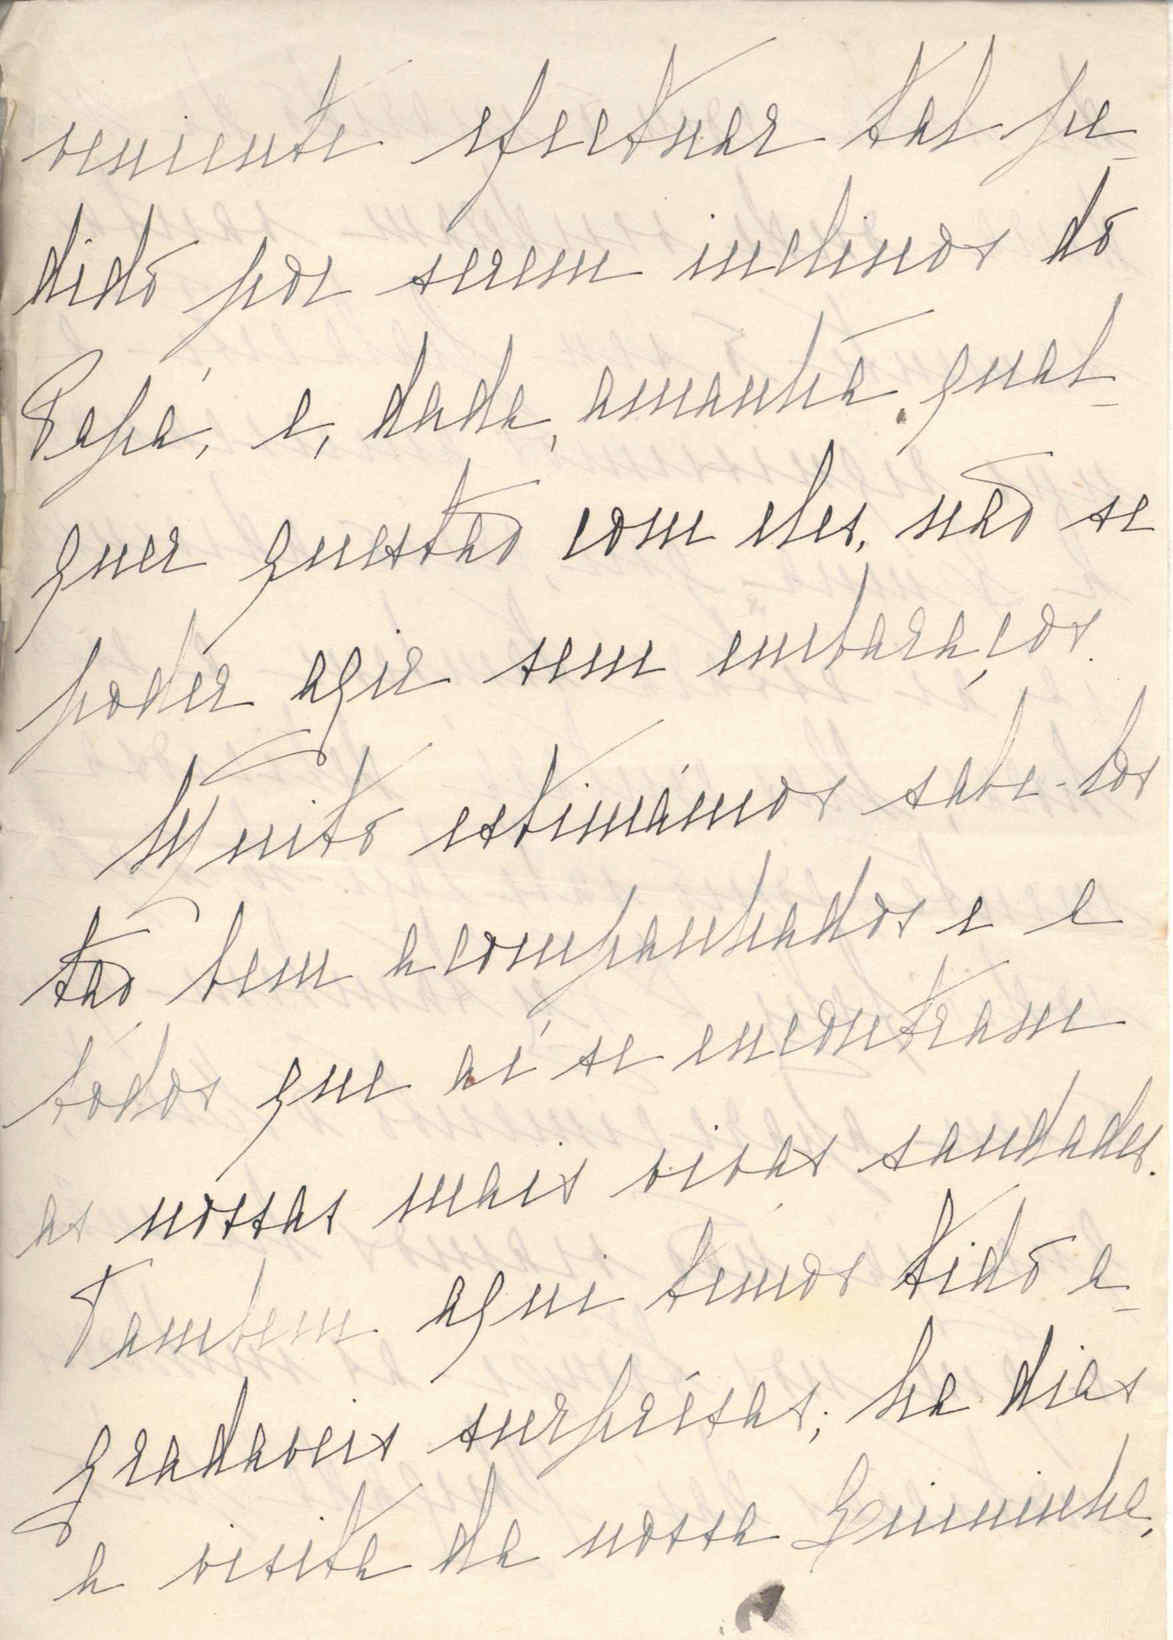 veniente efectuar tal pe-
dido por serem inclinos do
Papá, e, dada, amanhã, qual-
quer questão com eles, não se
poder agir sem embaraços.
Muito estimámos sabe-los
tão bem acompanhados e a
tôdos que aí se encontram
as nossas mais vivas saudades.
Tambem aqui temos tido a-
gradaveis surprêsas; ha dias
a visita da nossa